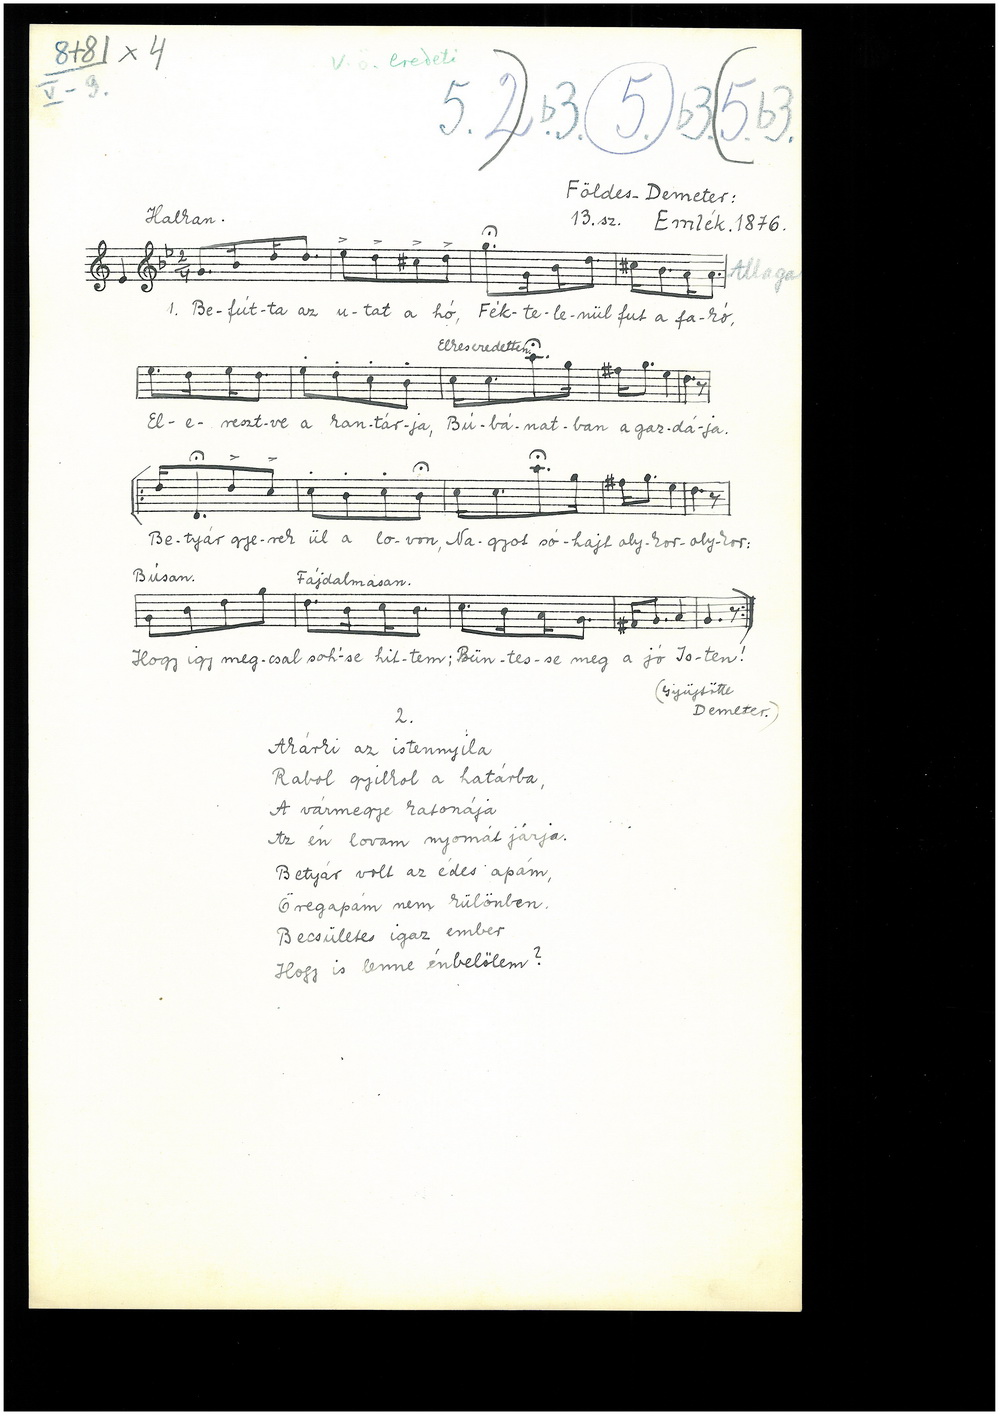 8+8| x 4
V - 9.
V. ö. eredeti
5. 2) b3. (5.) b3 (5 b3.
Földes-Demeter:
13. sz. Emlék. 1876.
Halkan.
Allaga
1. Be-fút-ta az u-tat a hó, Fék-te-le-nül fut a fa-kó,
Elkeseredetten
El-e-reszt-ve a kan-tár-ja, Bú-bá-nat-ban a gaz-dá-ja.
Be-tyár gye-rek ül a lo-von, Na-gyot só-hajt oly-kor-oly-kor:
Búsan. Fájdalmasan.
Hogy így meg-csal soh'-se hit-tem; Bün-tes-se meg a jó Is-ten!
(Gyüjtötte
Demeter.)
2.
Akárki az istennyila
Rabol gyilkol a határba,
A vármegye katonája
Az én lovam nyomát járja.
Betyár volt az édes apám,
Öregapám nem különben.
Becsületes igaz ember
Hogy is lenne énbelőlem?